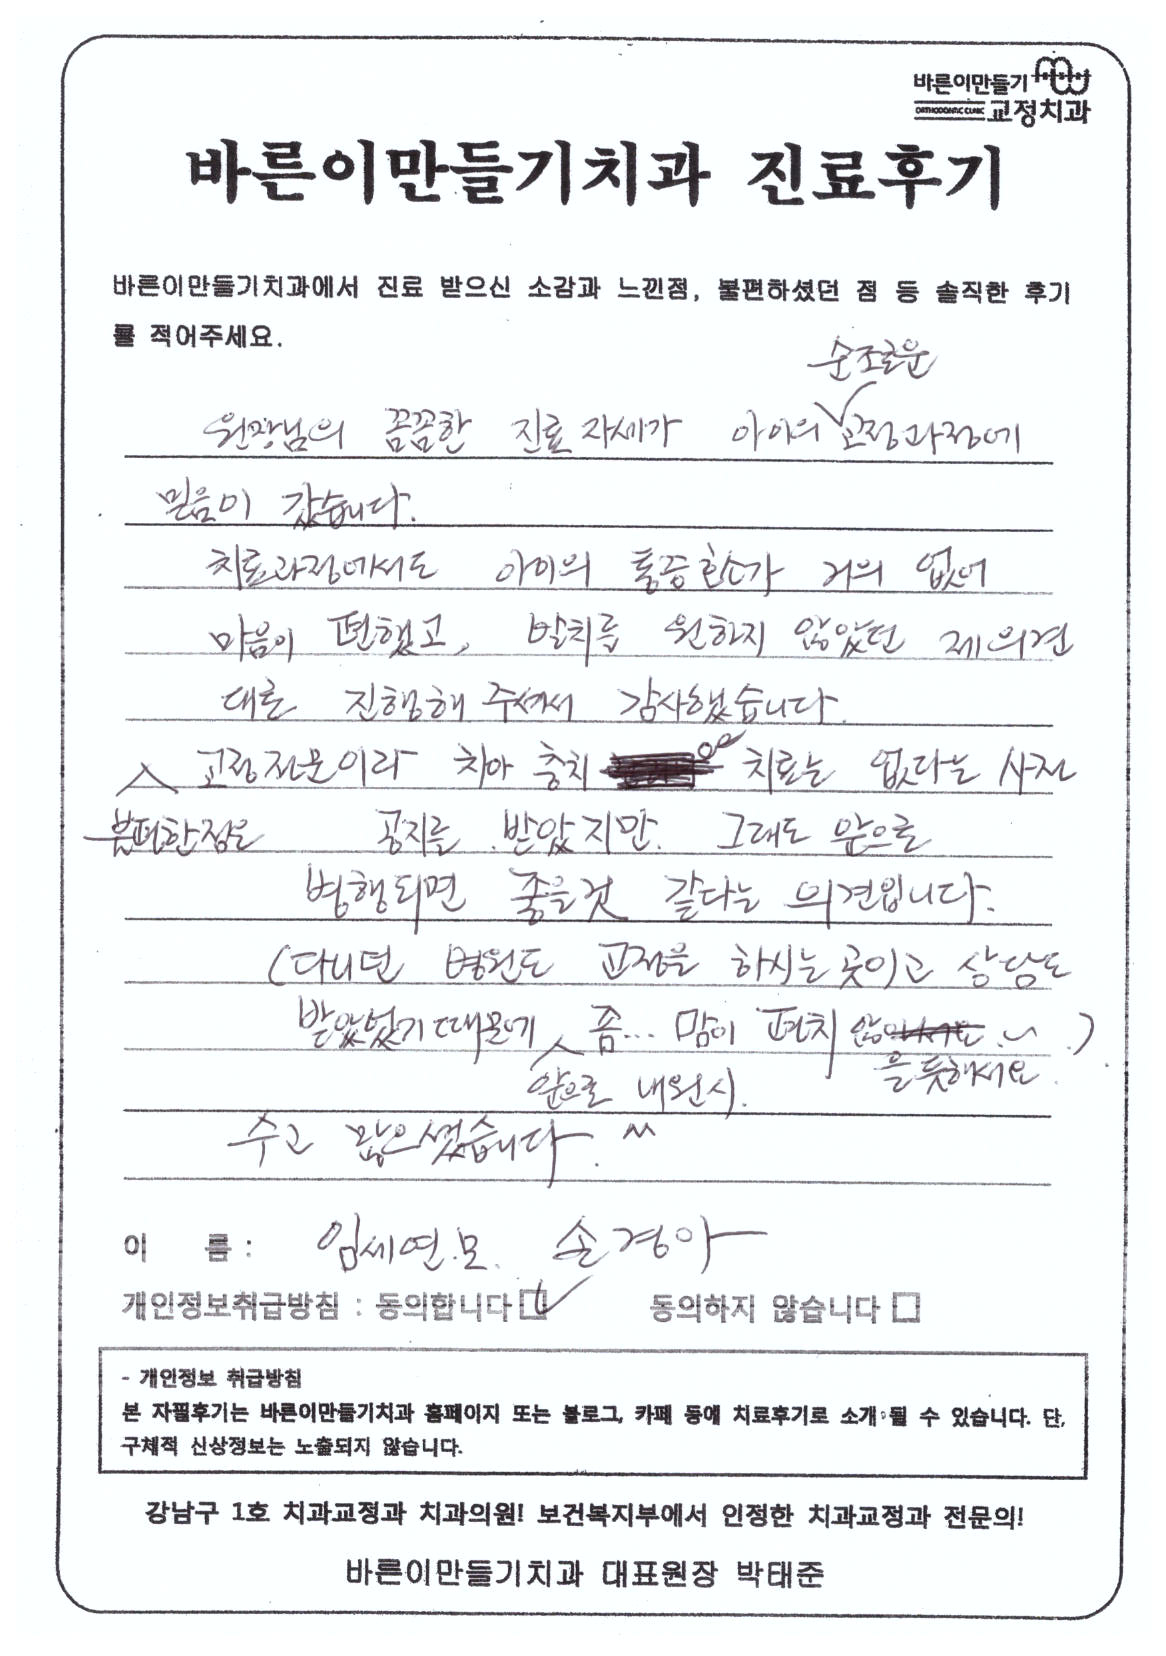 바른이만들기
ORTHODONTIC CLINIC 교정치과
바른이만들기치과 진료후기
바른이만들기치과에서 진료 받으신 소감과 느낀점, 불편하셨던 점 등 솔직한 후기
를 적어주세요.
순조로운
원장님의 꼼꼼한 진료 자세가 아이의 교정과정에
믿음이 갔습니다.
치료과정에서도 아이의 통증호소가 거의 없어
마음이 편했고, 발치를 원하지 않았던 제 의견
대로 진행해 주셔서 감사했습니다.
교정전문이라 치아 충치 치료는 없다는 사전
불편한점은 공지를 받았지만. 그래도 앞으로
병행되면 좋을것 같다는 의견입니다.
(다니던 병원도 교정을 하시는 곳이고 상담도
받았었기 때문에 좀... 맘이 편치 않 )
앞으로 내원시. 을듯해서요.
수고 많으셨습니다. ^^
이 름 : 임세연.모. 손경아
개인정보취급방침 : 동의합니다 ☑ 동의하지 않습니다 □
- 개인정보 취급방침
본 자필후기는 바른이만들기치과 홈페이지 또는 블로그, 카페 등에 치료후기로 소개 될 수 있습니다. 단,
구체적 신상정보는 노출되지 않습니다.
강남구 1호 치과교정과 치과의원! 보건복지부에서 인정한 치과교정과 전문의!
바른이만들기치과 대표원장 박태준